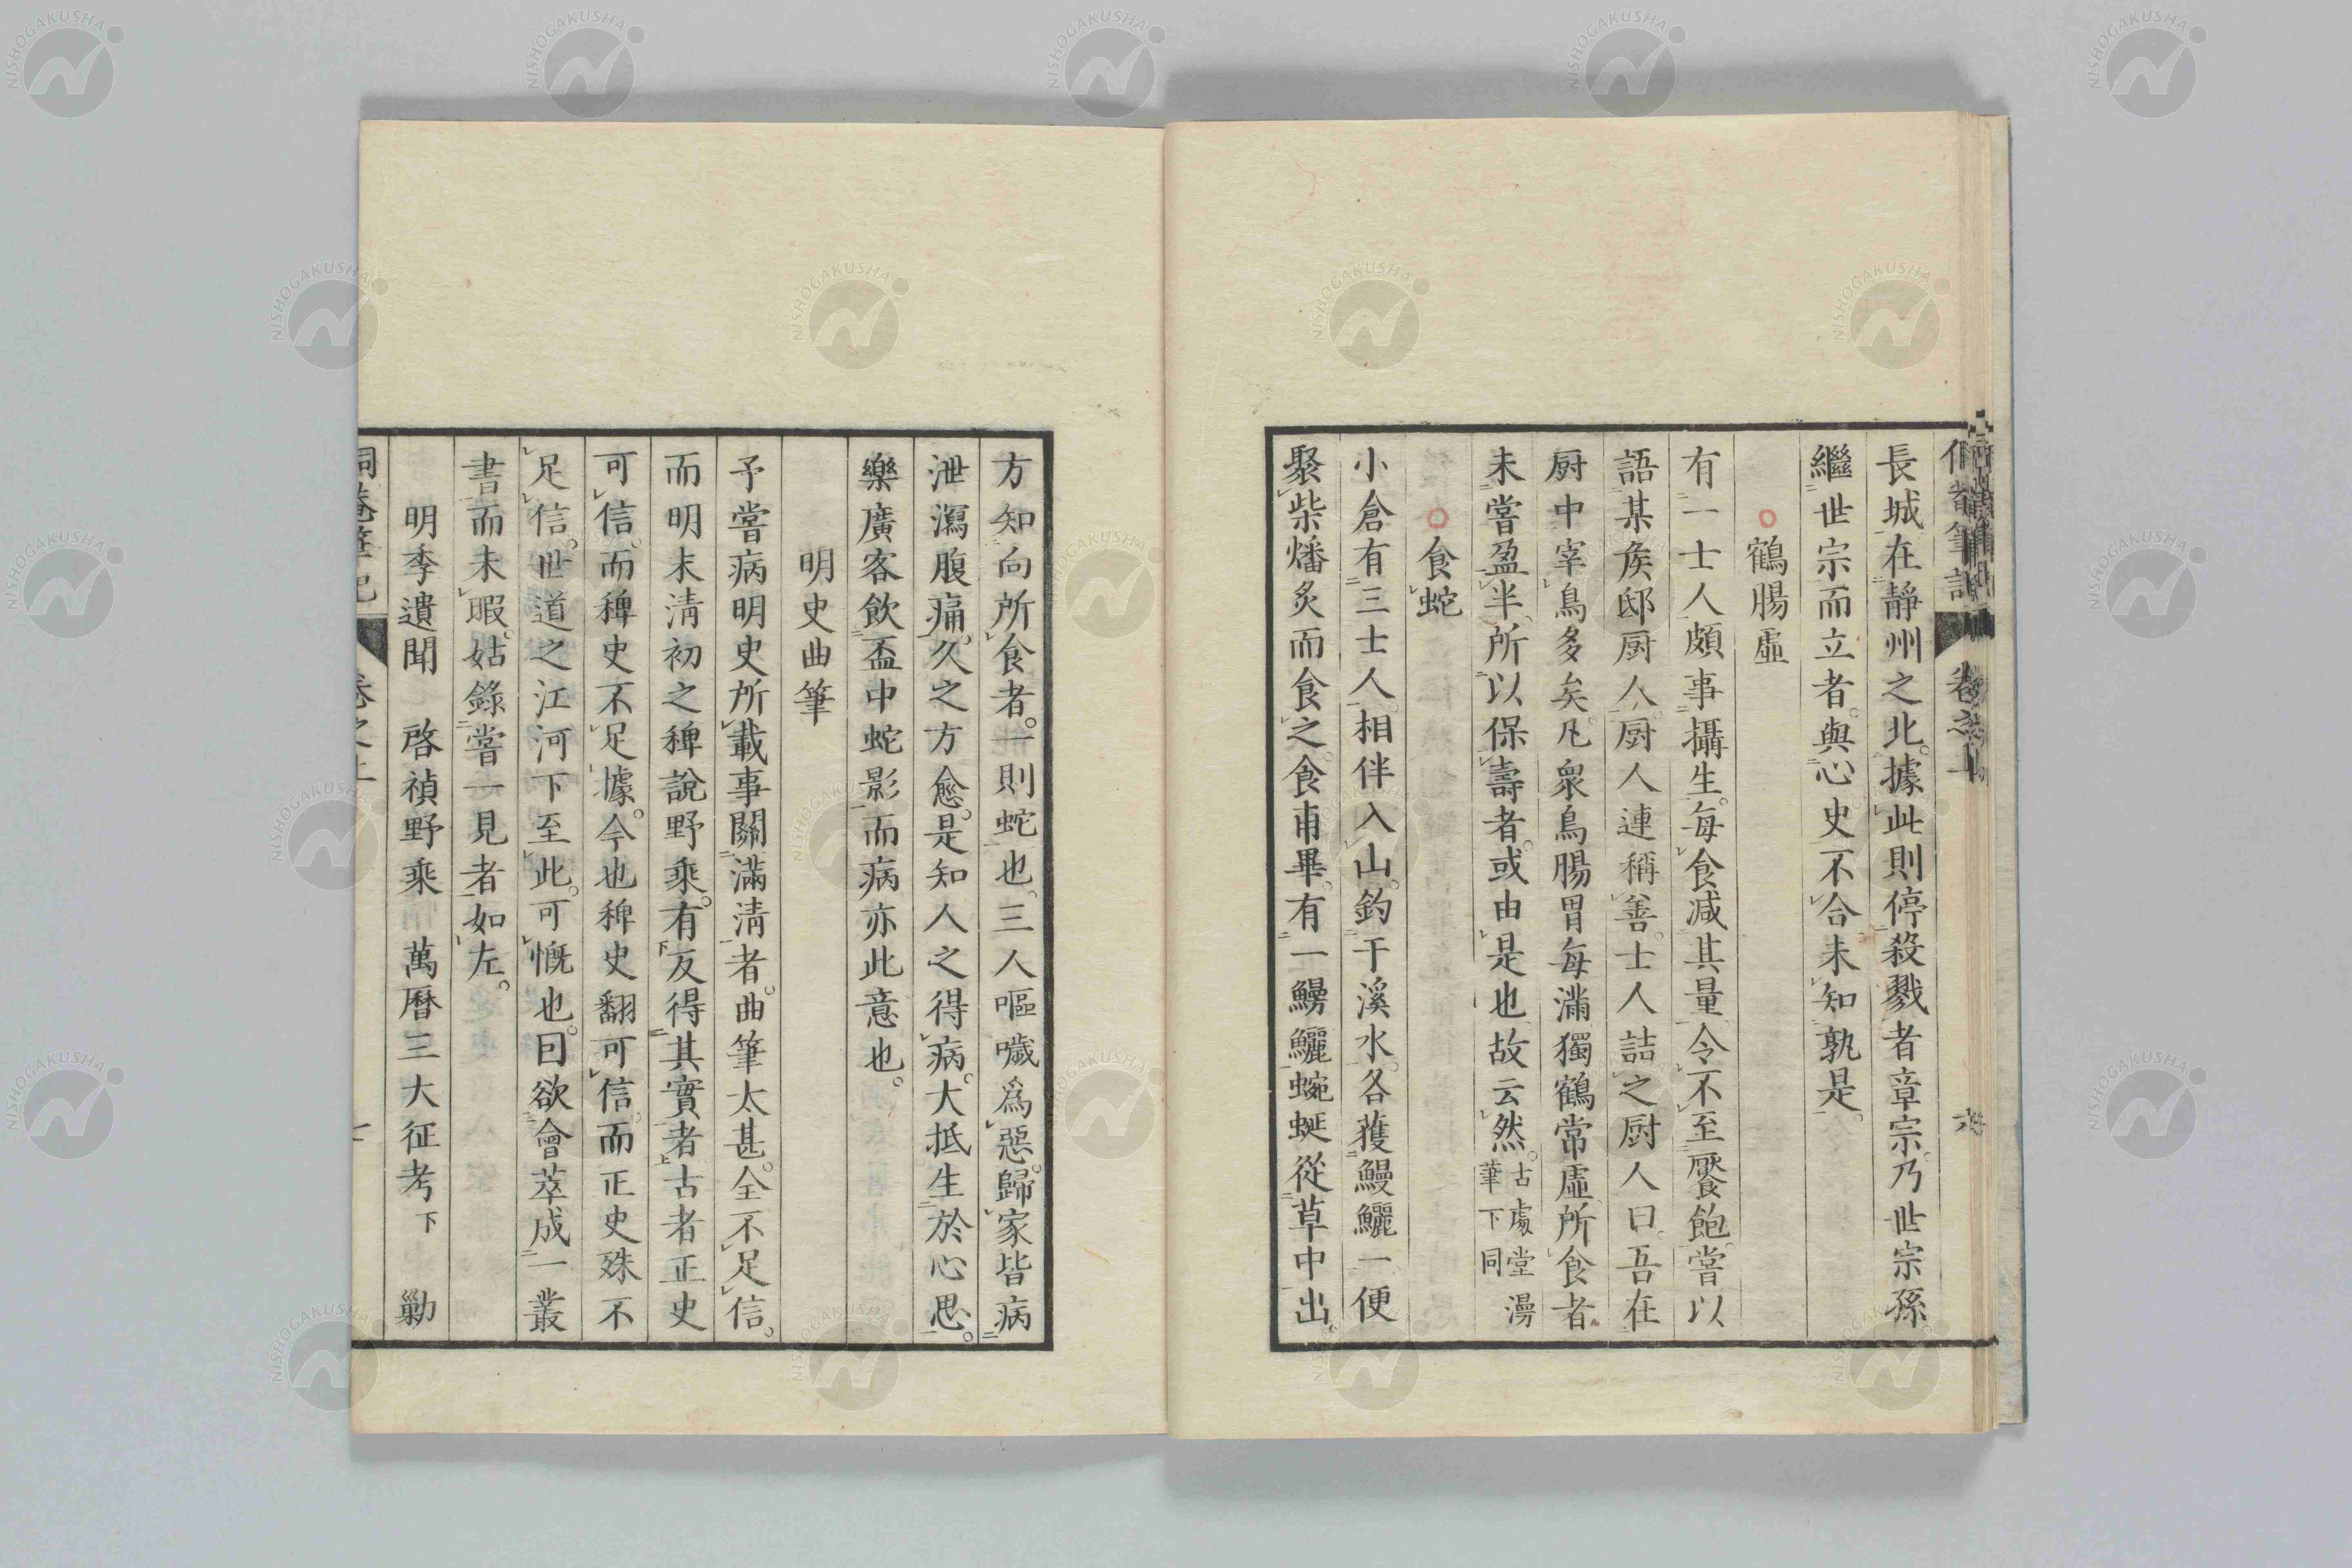 長城在靜州之北。據此則停殺戮者章宗。乃世宗孫
繼世宗而立者。與心史不合未知孰是。
○鶴腸虛
有一士人頗事攝生。每食減其量令不至饜飽。嘗以
語某侯邸厨人。厨人連稱善。士人詰之厨人曰。吾在
厨中宰鳥多矣。凡衆鳥腸胃每滿獨鶴常虛所食者
未嘗盈半。所以保壽者。或由是也故云然。古處堂漫筆下同
○食蛇
小倉有三士人。相伴入山。釣于溪水。各獲鰻鱺一便
聚柴燔炙而食之。食甫畢。有一鰻鱺蜿蜒從草中出。
方知向所食者。一則蛇也。三人嘔噦爲惡。歸家皆病
泄瀉腹痛。久之方愈。是知人之得病。大抵生於心思。
樂廣客飲盃中蛇影而病亦此意也。
明史曲筆
予嘗病明史所載事關滿淸者。曲筆太甚。全不足信。
而明末淸初之稗說野乘。有反得其實者古者正史
可信。而稗史不足據。今也稗史翻可信。而正史殊不
足信。世道之江河下至此。可慨也。因欲會萃成一叢
書而未暇。姑錄嘗一見者如左。
明季遺聞　啓禎野乘　萬曆三大征考　下　勦
侗菴筆記　卷之上　六
NISHOGAKUSHA